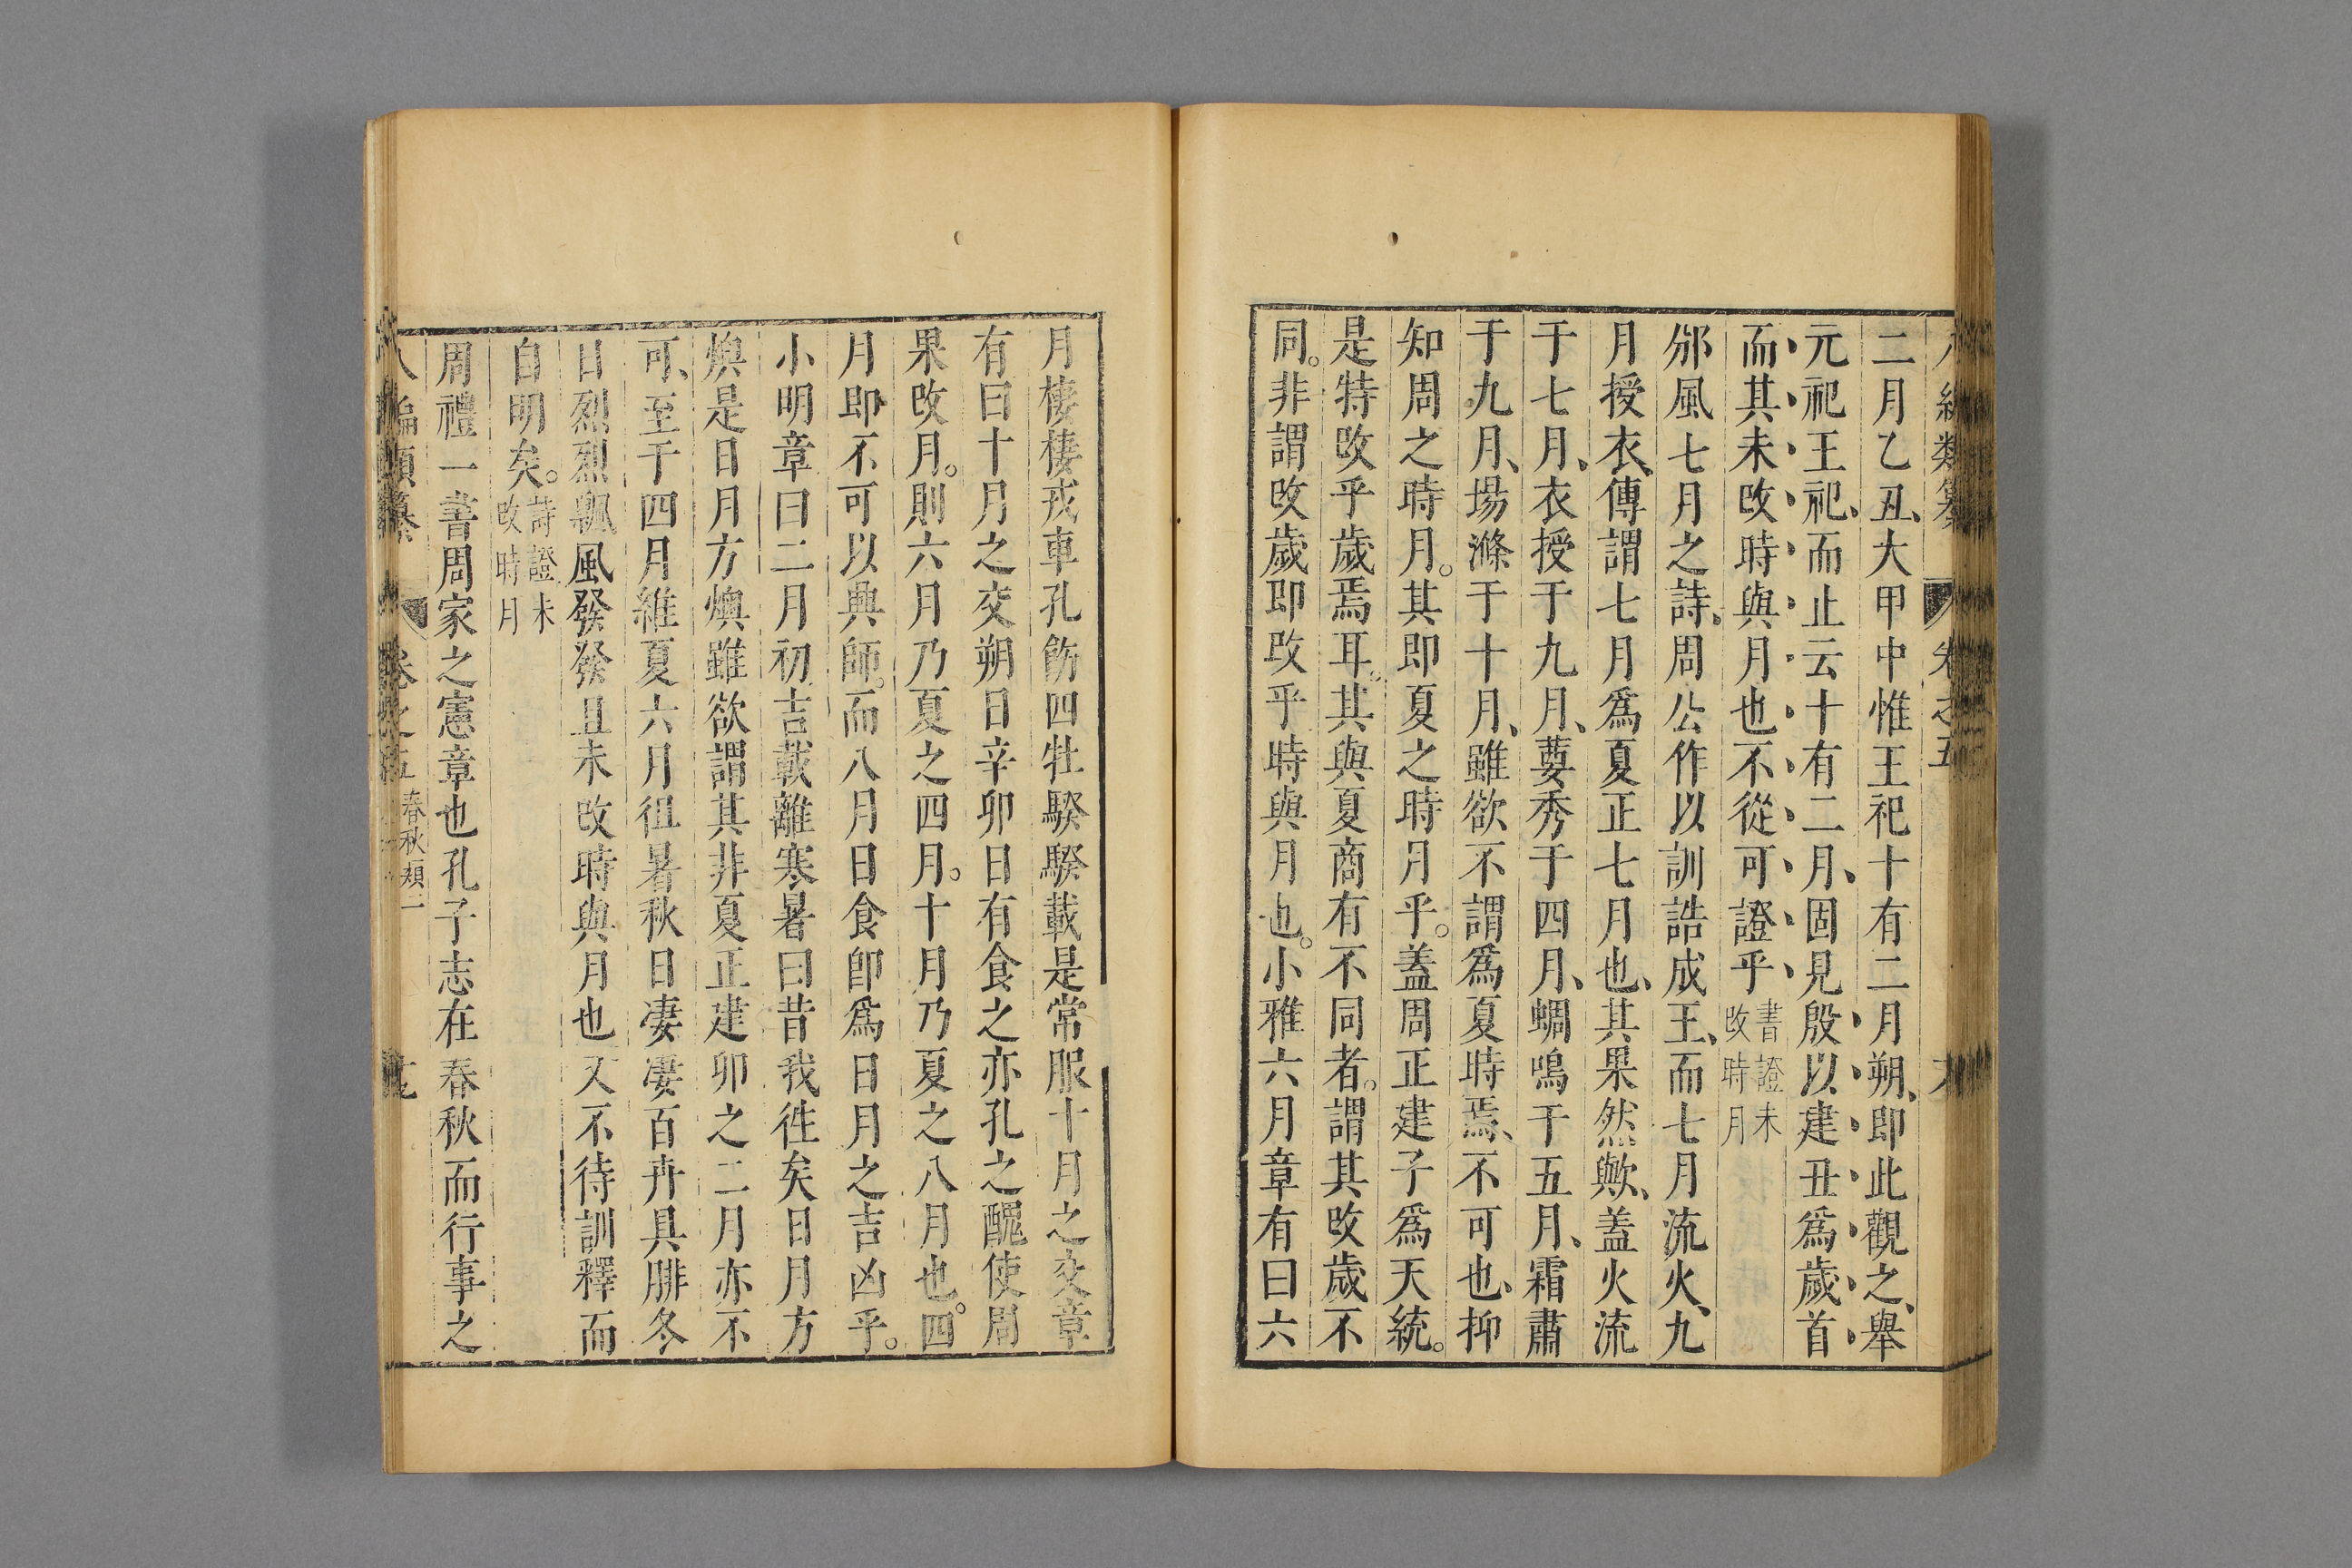 二月乙丑、大甲中惟王祀十有二月朔、即此觀之、舉
元祀王祀、而止云十有二月、固見殷以建丑爲歲首
而其未改時與月也不從可證乎書證未改時月
邠風七月之詩、周公作以訓誥成王、而七月流火、九
月授衣、傳謂七月爲夏正七月也、其果然歟、蓋火流
于七月、衣授于九月、葽秀于四月、蜩鳴于五月、霜肅
于九月、場滌于十月、雖欲不謂爲夏時焉、不可也、抑
知周之時月。其即夏之時月乎。蓋周正建子爲天統。
是特改乎歲焉耳。其與夏商有不同者。謂其改歲不
同。非謂改歲即改乎時與月也。小雅六月章有曰六
月棲棲戎車孔飭四牡騤騤載是常服十月之交章
有曰十月之交朔日辛卯日有食之亦孔之醜使周
果改月。則六月乃夏之四月。十月乃夏之八月也。四
月即不可以興師。而八月日食卽爲日月之吉凶乎。
小明章曰二月初吉載離寒暑曰昔我徃矣日月方
燠是日月方燠雖欲謂其非夏正建卯之二月亦不
可、至于四月維夏六月徂暑秋日凄凄百卉具腓冬
日烈烈飄風發發且未改時與月也又不待訓釋而
自明矣。詩證未改時月
周禮一書周家之憲章也孔子志在春秋而行事之
八編類纂 卷之五 春秋類二